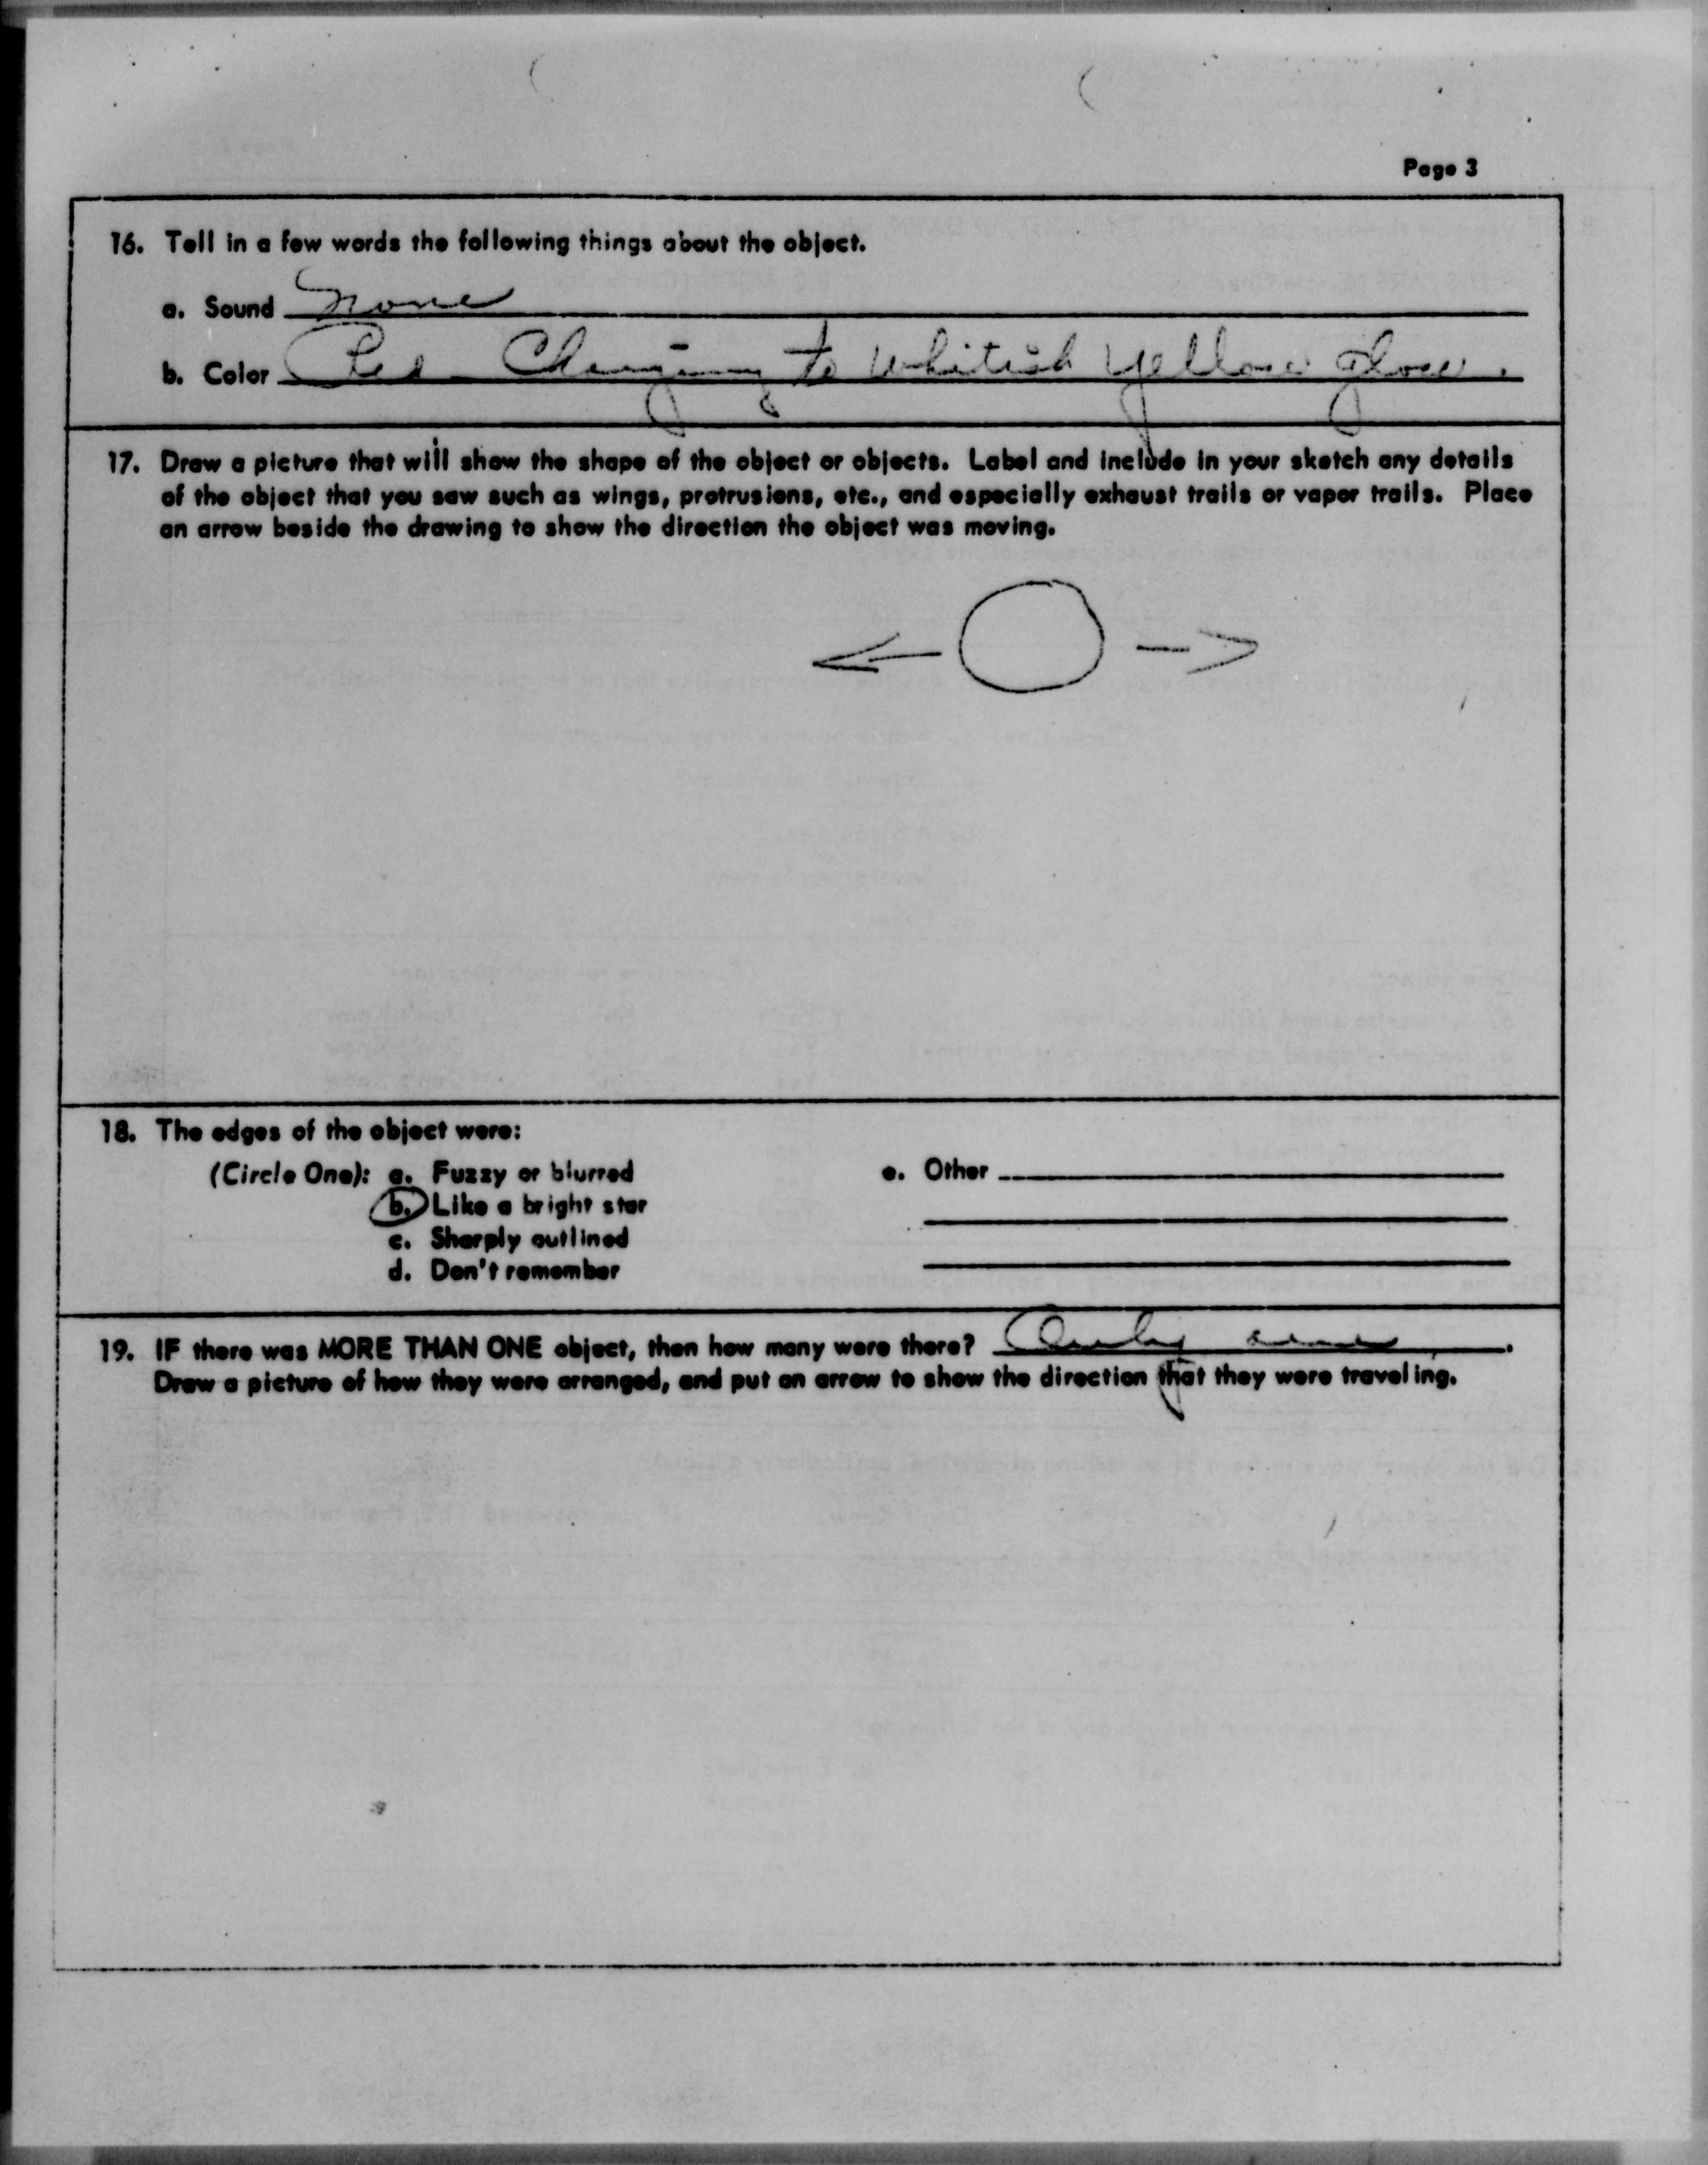 Page 3
16. Tell in a few words the following things about the object.
a. Sound None
b. Color Red - Changing to whitish yellow glow.
17. Draw a picture that will show the shape of the object or objects. Label and include in your sketch any details
of the object that you saw such as wings, protrusions, etc., and especially exhaust trails or vapor trails. Place
an arrow beside the drawing to show the direction the object was moving.
18. The edges of the object were:
(Circle One): a. Fuzzy or blurred
b. Like a bright star
c. Sharply outlined
d. Don't remember
e. Other
19. IF there was MORE THAN ONE object, then how many were there? Only one.
Draw a picture of how they were arranged, and put an arrow to show the direction that they were traveling.